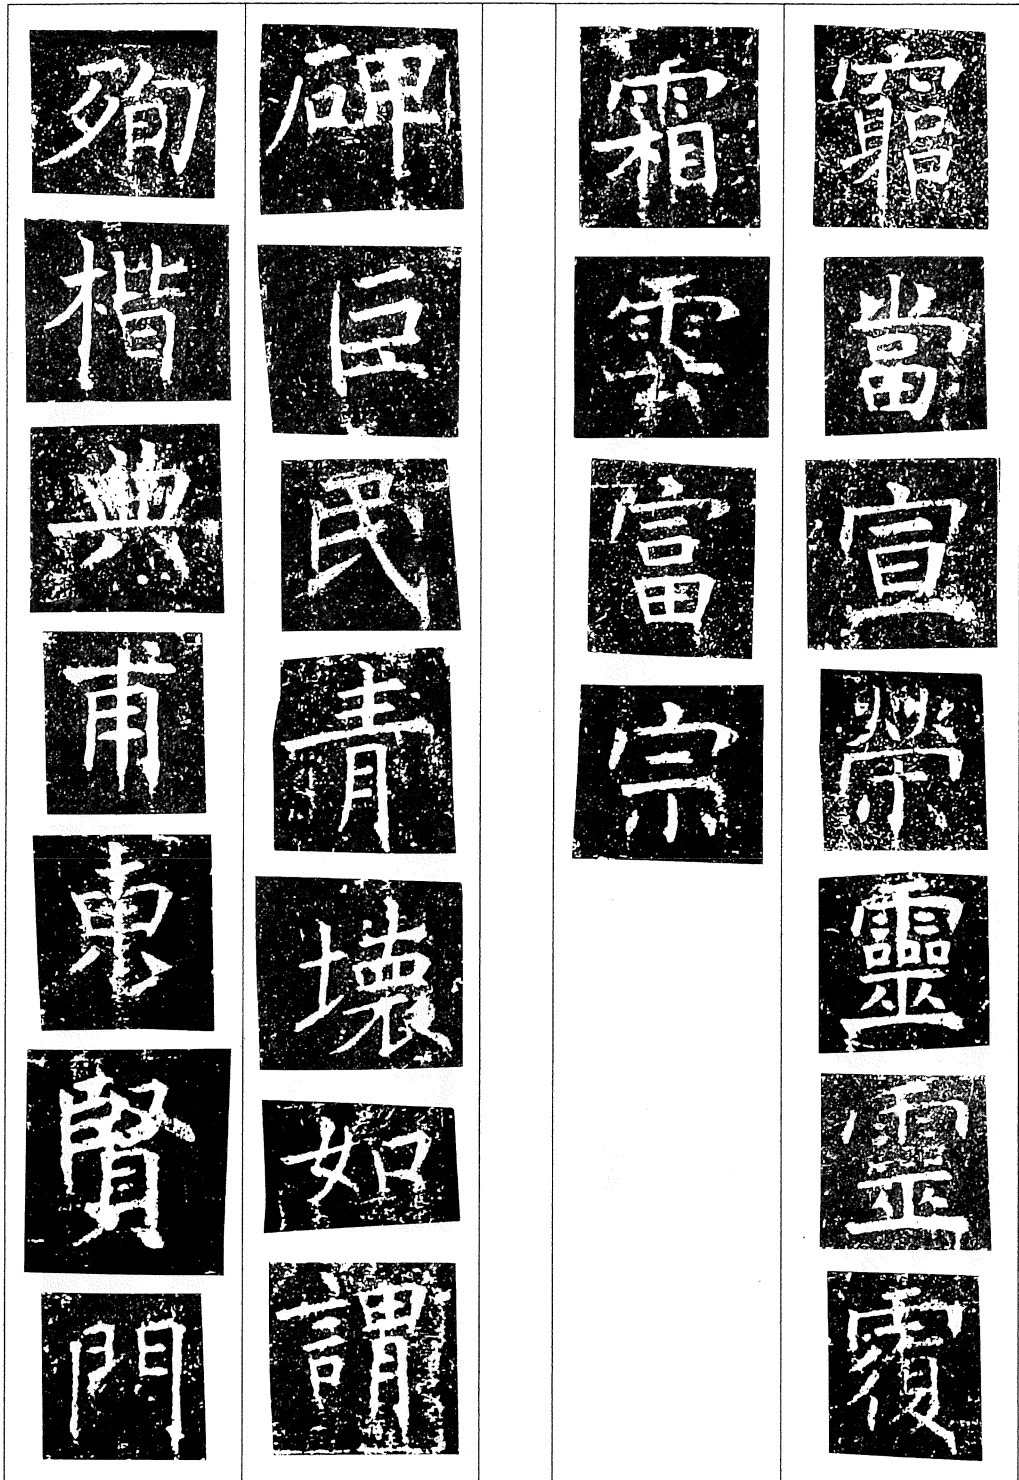 窮當宣榮靈靈覆
霜雲富宗
碑臣民青壞如謂
殉楷典甫惠賢門